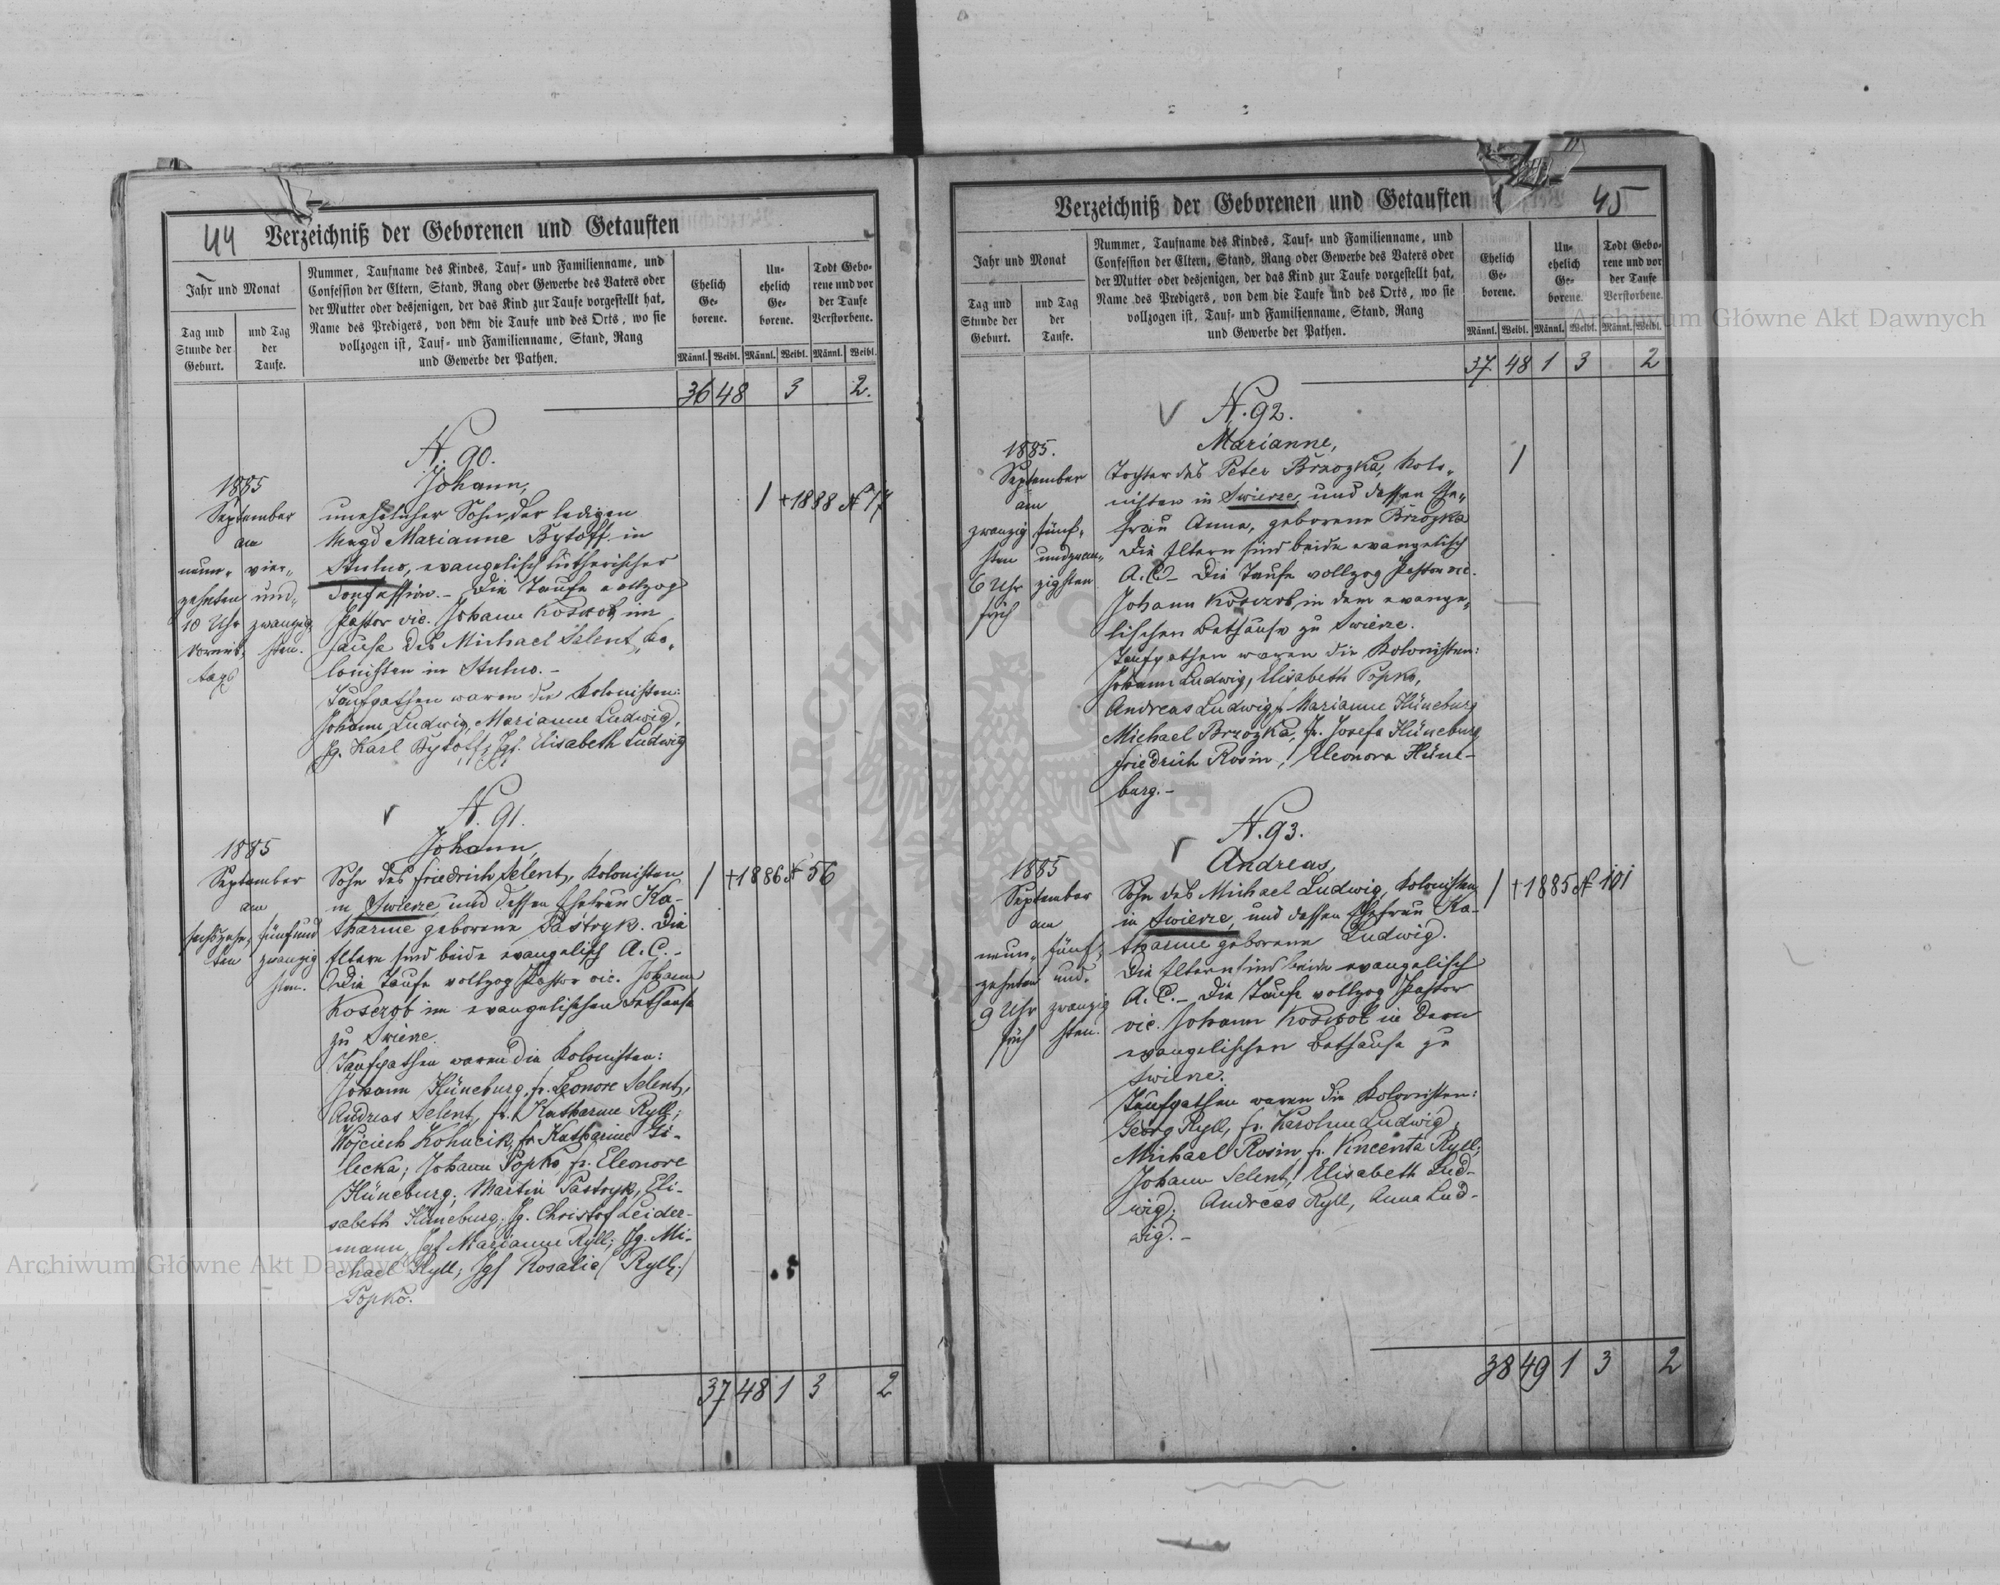 44 Verzeichniß der Geborenen und Getauften
Jahr und Monat
Tag und Stunde der Geburt.
und Tag der Taufe.
Nummer, Taufname des Kindes, Tauf- und Familienname, und
Confession der Eltern, Stand, Rang oder Gewerbe des Vaters oder
der Mutter oder desjenigen, der das Kind zur Taufe vorgestellt hat,
Name des Predigers, von dem die Taufe und des Orts, wo sie
vollzogen ist, Tauf- und Familienname, Stand, Rang
und Gewerbe der Pathen.
Ehelich Geborene.
Unehelich Geborene.
Todt Geborene und vor der Taufe Verstorbene.
Männl. Weibl. Männl. Weibl. Männl. Weibl.
36 48 3 2.
N. 90.
Johann,
1885
September
am
neun- vier-
zehnten und-
10 Uhr zwanzig-
vormit- sten.
tags
unehelicher Sohn der ledigen
Magd Marianne Bytoff in
Stulno, evangelisch lutherischer
Confession. – Die Taufe vollzog
Pastor vic. Johann Koserob im
Hause des Michael Selent, Ko-
lonisten in Stulno. –
Taufpathen waren die Kolonisten:
Johann Ludwig, Marianne Ludwig,
Jg. Karl Bytoff, Jgf. Elisabeth Ludwig
1 +1888 N 77
N. 91.
Johann,
1885
September
am
sechszehn- fünfund
ten zwanzig
sten.
Sohn des Friedrich Selent, Kolonisten
in Swierze und dessen Ehefrau Ka-
tharine geborene Pastryk. Die
Eltern sind beide evangelisch A. C. –
Die Taufe vollzog Pastor vic. Johann
Koserob im evangelischen Bethause
zu Swierze.
Taufpathen waren die Kolonisten:
Johann Hüneburg, fr. Leonore Selent,
Andreas Selent, fr. Katharine Ryll;
Wojciech Kohucik, fr. Katharine Gi-
lecka; Johann Popko, fr. Eleonore
Hüneburg; Martin Pastryk, Eli-
sabeth Hüneburg; Jg. Christof Leider-
mann, Jgf. Marianne Ryll; Jg. Mi-
chael Ryll; Jgf. Rosalie (Ryll.)
Popko.
1 +1886 N 56
37 48 1 3 2
Verzeichniß der Geborenen und Getauften 45
Jahr und Monat
Tag und Stunde der Geburt.
und Tag der Taufe.
Nummer, Taufname des Kindes, Tauf- und Familienname, und
Confession der Eltern, Stand, Rang oder Gewerbe des Vaters oder
der Mutter oder desjenigen, der das Kind zur Taufe vorgestellt hat,
Name des Predigers, von dem die Taufe und des Orts, wo sie
vollzogen ist, Tauf- und Familienname, Stand, Rang
und Gewerbe der Pathen.
Ehelich Geborene.
Unehelich Geborene.
Todt Geborene und vor der Taufe Verstorbene.
Männl. Weibl. Männl. Weibl. Männl. Weibl.
37 48 1 3 2
N. 92.
Marianne,
1885.
September
am
zwanzig- fünf-
sten undzwan-
6 Uhr zigsten
früh
Tochter des Peter Brzozka, Kolo-
nisten in Swierze, und dessen Ehe-
frau Anna, geborene Brzozka
Die Eltern sind beide evangelisch
A. C. – Die Taufe vollzog Pastor vic.
Johann Koserob, in dem evange-
lischen Bethause zu Swierze.
Taufpathen waren die Kolonisten:
Johann Ludwig, Elisabeth Popko,
Andreas Ludwig, Marianne Hüneburg
Michael Brzozka, fr. Josefa Hüneburg
Friedrich Rosin, Eleonora Hüne-
burg. –
1
N. 93.
Andreas,
1885
September
am
neun- fünf-
zehnten und-
9 Uhr zwanzig
früh sten.
Sohn des Michael Ludwig, Kolonisten
in Swierze, und dessen Ehefrau Ka-
tharine geborene Ludwig.
Die Eltern sind beide evangelisch
A. C. – Die Taufe vollzog Pastor
vic. Johann Koserob in dem
evangelischen Bethause zu
Swierze.
Taufpathen waren die Kolonisten:
Georg Ryll, fr. Karoline Ludwig;
Michael Rosin, fr. Vincenta Ryll;
Johann Selent, Elisabeth Lud-
wig; Andreas Ryll, Anna Lud-
wig. –
1 +1885 N 101
38 49 1 3 2
Archiwum Główne Akt Dawnych
Archiwum Główne Akt Dawnych